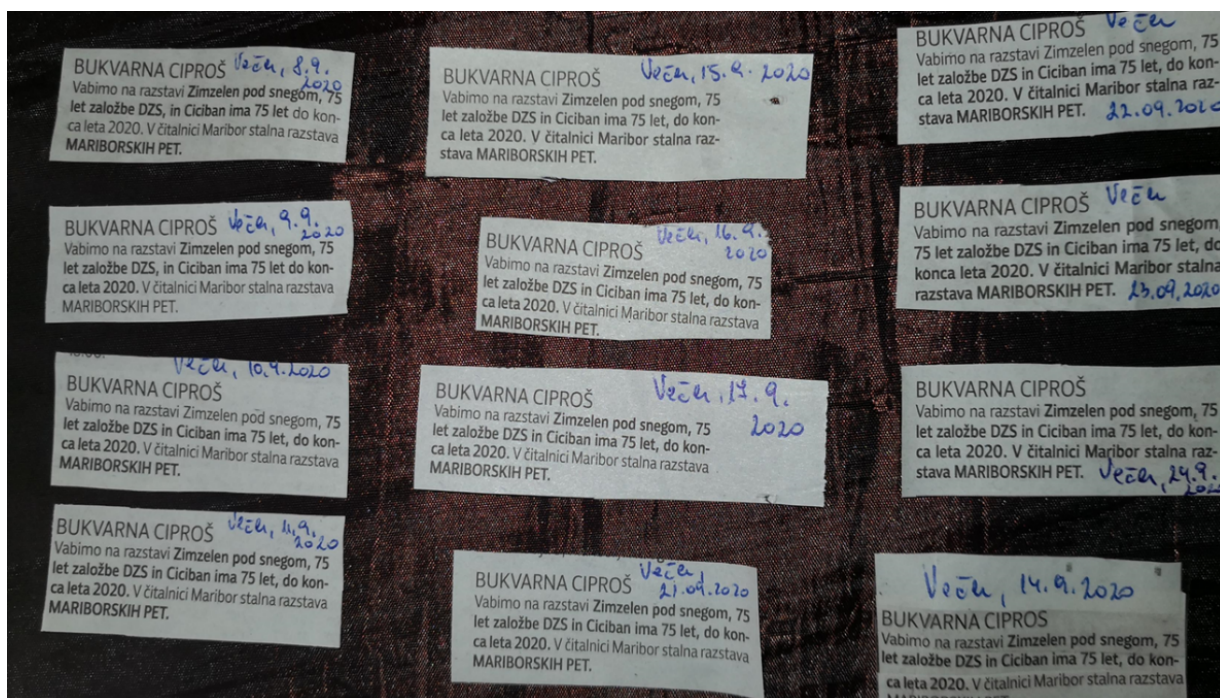 BUKVARNA CIPROŠ Večer, 8.9.
2020
Vabimo na razstavi Zimzelen pod snegom, 75
let založbe DZS, in Ciciban ima 75 let do kon-
ca leta 2020. V čitalnici Maribor stalna razstava
MARIBORSKIH PET.
BUKVARNA CIPROŠ Večer, 9.9.
2020
Vabimo na razstavi Zimzelen pod snegom, 75
let založbe DZS, in Ciciban ima 75 let do kon-
ca leta 2020. V čitalnici Maribor stalna razstava
MARIBORSKIH PET.
Večer, 10.9.2020
BUKVARNA CIPROŠ
Vabimo na razstavi Zimzelen pod snegom, 75
let založbe DZS in Ciciban ima 75 let, do kon-
ca leta 2020. V čitalnici Maribor stalna razstava
MARIBORSKIH PET.
BUKVARNA CIPROŠ Večer, 11.9.
2020
Vabimo na razstavi Zimzelen pod snegom, 75
let založbe DZS in Ciciban ima 75 let, do kon-
ca leta 2020. V čitalnici Maribor stalna razstava
MARIBORSKIH PET.
BUKVARNA CIPROŠ Večer, 15.9. 2020
Vabimo na razstavi Zimzelen pod snegom, 75
let založbe DZS in Ciciban ima 75 let, do kon-
ca leta 2020. V čitalnici Maribor stalna raz-
stava MARIBORSKIH PET.
BUKVARNA CIPROŠ Večer, 16.9.
2020
Vabimo na razstavi Zimzelen pod snegom, 75
let založbe DZS in Ciciban ima 75 let, do kon-
ca leta 2020. V čitalnici Maribor stalna razstava
MARIBORSKIH PET.
BUKVARNA CIPROŠ Večer, 17.9.
2020
Vabimo na razstavi Zimzelen pod snegom, 75
let založbe DZS in Ciciban ima 75 let, do kon-
ca leta 2020. V čitalnici Maribor stalna razstava
MARIBORSKIH PET.
BUKVARNA CIPROŠ Večer
21.09.2020
Vabimo na razstavi Zimzelen pod snegom, 75
let založbe DZS in Ciciban ima 75 let, do kon-
ca leta 2020. V čitalnici Maribor stalna razstava
MARIBORSKIH PET.
BUKVARNA CIPROŠ Večer
Vabimo na razstavi Zimzelen pod snegom, 75
let založbe DZS in Ciciban ima 75 let, do kon-
ca leta 2020. V čitalnici Maribor stalna raz-
stava MARIBORSKIH PET. 22.09.2020
BUKVARNA CIPROŠ Večer
Vabimo na razstavi Zimzelen pod snegom,
75 let založbe DZS in Ciciban ima 75 let, do
konca leta 2020. V čitalnici Maribor stalna
razstava MARIBORSKIH PET. 23.09.2020
BUKVARNA CIPROŠ
Vabimo na razstavi Zimzelen pod snegom, 75
let založbe DZS in Ciciban ima 75 let, do kon-
ca leta 2020. V čitalnici Maribor stalna raz-
stava MARIBORSKIH PET. Večer, 24.9.
2020
Večer, 14.9.2020
BUKVARNA CIPROŠ
Vabimo na razstavi Zimzelen pod snegom, 75
let založbe DZS in Ciciban ima 75 let, do kon-
ca leta 2020. V čitalnici Maribor stalna razstava